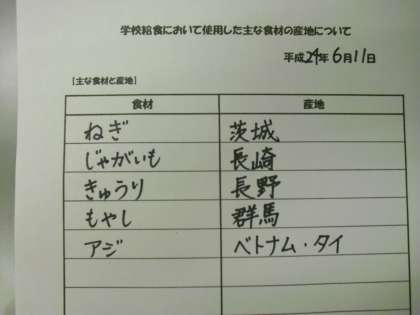 学校給食において使用した主な食材の産地について
平成24年6月11日
【主な食材と産地】
食材 産地
ねぎ 茨城
じゃがいも 長崎
きゅうり 長野
もやし 群馬
アジ ベトナム・タイ